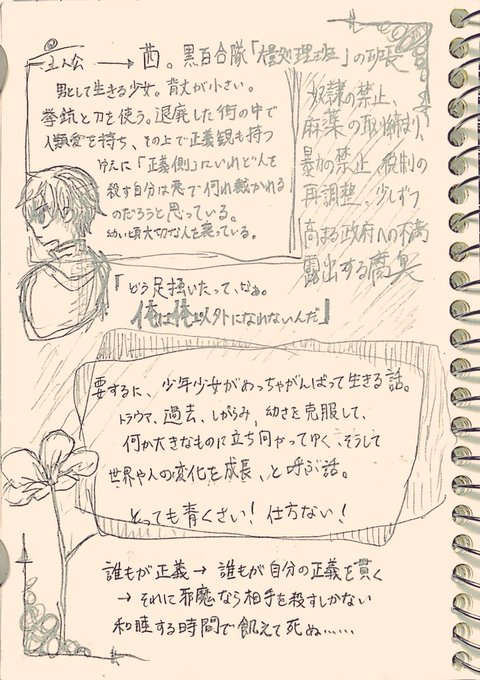 主人公 → 酉。黒百合隊「処理班」の班長
男として生きる少女。背丈が小さい。
拳銃と刀を使う。退廃した街の中で
人類愛を持ち、その上で正義観も持つ
ゆえに「正義側」にいれど人を
殺す自分は悪で何れ裁かれる
のだろうと思っている。
幼い頃大切な人を喪っている。
奴隷の禁止、
麻薬の取り締まり、
暴力の禁止、税制の
再調整、少しずつ
高まる政府への不満
露出する腐臭
「どう足掻いたって、なぁ。
俺は俺以外になれないんだ」
要するに、少年少女がめっちゃがんばって生きる話。
トラウマ、過去、しがらみ、幼さを克服して、
何か大きなものに立ち向かってゆく、そうして
世界や人の変化を成長、と呼ぶ話。
とっても青くさい!仕方ない!
誰もが正義 → 誰もが自分の正義を貫く
→ それに邪魔なら相手を殺すしかない
和睦する時間で飢えて死ぬ……